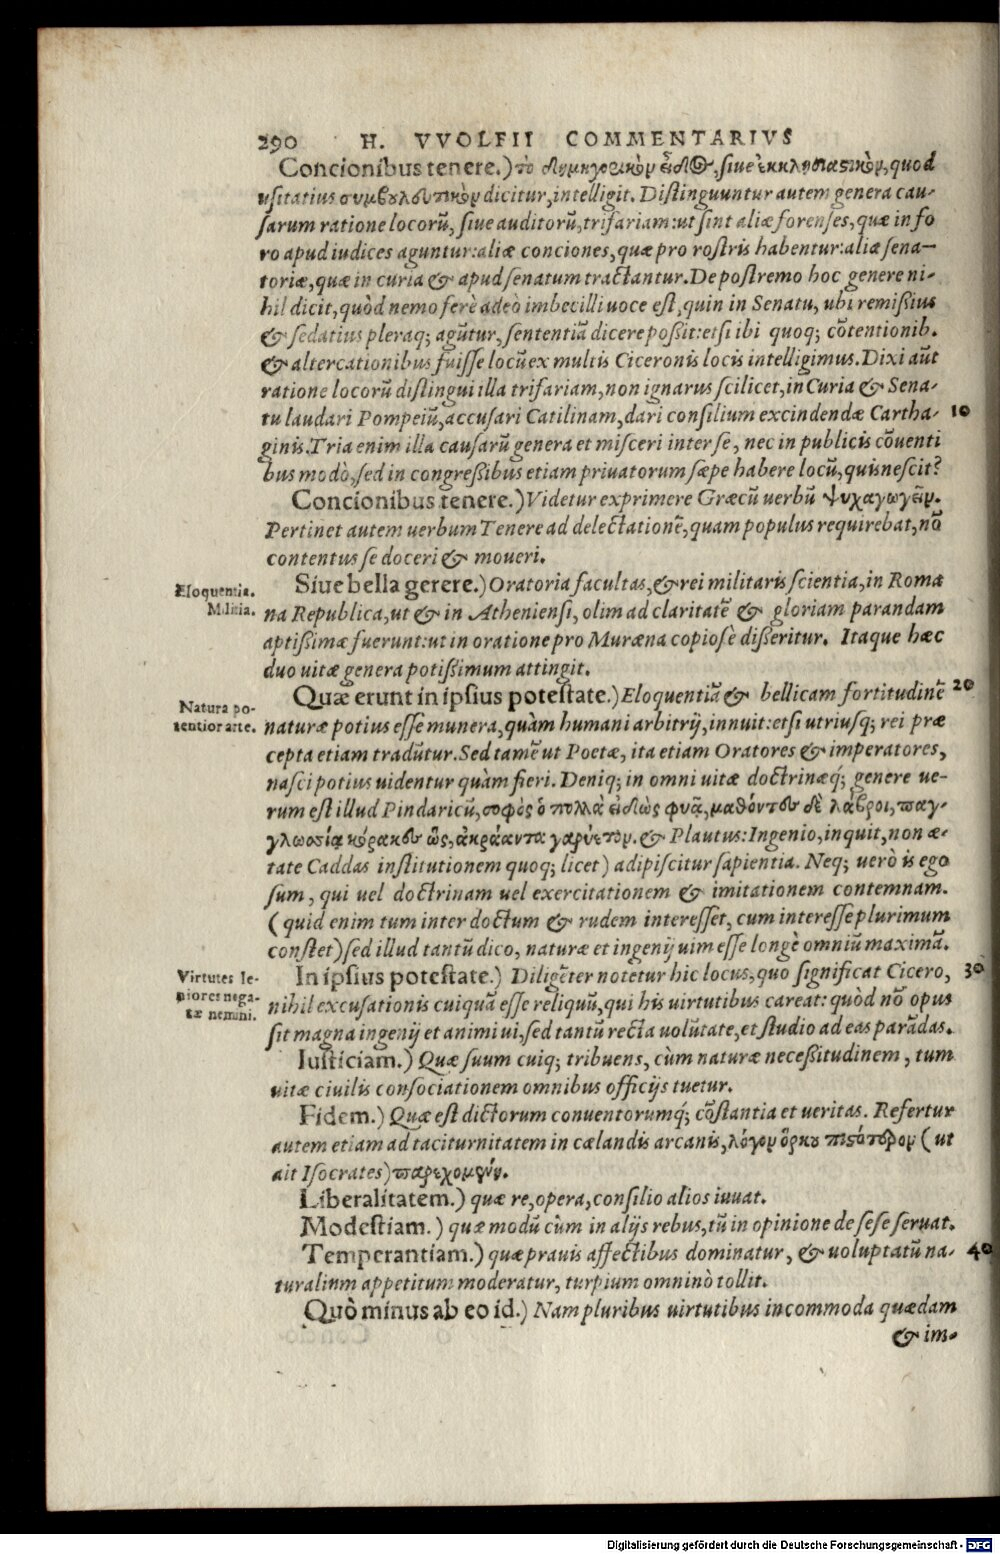 290 H. VVOLFII COMMENTARIVS
Concionibus tenere.) τὸ δημηγορικὸν εἶδος, siue ἐκκλησιαστικὸν, quod
usitatius συμβουλευτικὸν dicitur, intelligit. Distinguuntur autem genera cau-
sarum ratione locorũ, siue auditorũ, trifariam: ut sint aliæ forenses, quæ in fo
ro apud iudices aguntur: aliæ conciones, quæ pro rostris habentur: aliæ sena-
toriæ, quæ in curia & apud senatum tractantur. De postremo hoc genere ni-
hil dicit, quòd nemo ferè adeò imbecilli uoce est, quin in Senatu, ubi remißius
& sedatius pleraq; agũtur, sententiã dicere poßit: etsi ibi quoq; cõtentionib.
& altercationibus fuisse locũ ex multis Ciceronis locis intelligimus. Dixi aũt
ratione locorũ distingui illa trifariam, non ignarus scilicet, in Curia & Sena-
tu laudari Pompeiũ, accusari Catilinam, dari consilium excindendæ Cartha- 10
ginis. Tria enim illa causarũ genera et misceri inter se, nec in publicis cõuenti
bus modò, sed in congreßibus etiam priuatorum sæpe habere locũ, quis nescit?
Concionibus tenere.) Videtur exprimere Græcũ uerbũ ψυχαγωγεῖν.
Pertinet autem uerbum Tenere ad delectationẽ, quam populus requirebat, nõ
contentus se doceri & moueri.
Eloquentia.
Militia.
Siue bella gerere.) Oratoria facultas, & rei militaris scientia, in Roma
na Republica, ut & in Atheniensi, olim ad claritatẽ & gloriam parandam
aptißimæ fuerunt: ut in oratione pro Muræna copiosè disseritur. Itaque hæc
duo uitæ genera potißimum attingit.
Natura po-
tentior arte.
Quæ erunt in ipsius potestate.) Eloquentiã & bellicam fortitudinẽ 20
naturæ potius esse munera, quàm humani arbitrij, innuit: etsi utriusq; rei præ
cepta etiam tradũtur. Sed tamẽ ut Poetæ, ita etiam Oratores & imperatores,
nasci potius uidentur quàm fieri. Deniq; in omni uitæ doctrinæq́; genere ue-
rum est illud Pindaricũ, σοφὸς ὁ πολλὰ εἰδὼς φυᾷ, μαθόντες δὲ λάβροι, παγ-
γλωσσίᾳ κόρακες ὣς, ἄκραντα γαρύετον. & Plautus: Ingenio, inquit, non æ-
tate Caddas institutionem quoq; licet) adipiscitur sapientia. Neq; uerò is ego
sum, qui uel doctrinam uel exercitationem & imitationem contemnam.
(quid enim tum inter doctum & rudem interesset, cum interesse plurimum
constet) sed illud tantũ dico, naturæ et ingenij uim esse longè omniũ maximã.
Virtutes le-
piores nega-
tæ nemini.
In ipsius potestate.) Diligẽter notetur hic locus, quo significat Cicero, 30
nihil excusationis cuiquã esse reliquũ, qui his uirtutibus careat: quòd nõ opus
sit magna ingenij et animi ui, sed tantũ recta uolũtate, et studio ad eas parãdas.
Iusticiam.) Quæ suum cuiq; tribuens, cùm naturæ neceßitudinem, tum
uitæ ciuilis consociationem omnibus officijs tuetur.
Fidem.) Quæ est dictorum conuentorumq́; cõstantia et ueritas. Refertur
autem etiam ad taciturnitatem in cælandis arcanis, λόγον ὅρκου πιστότερον (ut
ait Isocrates) παρεχομένην.
Liberalitatem.) quæ re, opera, consilio alios iuuat.
Modestiam.) quæ modũ cùm in alijs rebus, tũ in opinione de sese seruat.
Temperantiam.) quæ prauis affectibus dominatur, & uoluptatũ na- 40
turalium appetitum moderatur, turpium omninò tollit.
Quò minus ab eo id.) Nam pluribus uirtutibus incommoda quædam
& im-
Digitalisierung gefördert durch die Deutsche Forschungsgemeinschaft - DFG